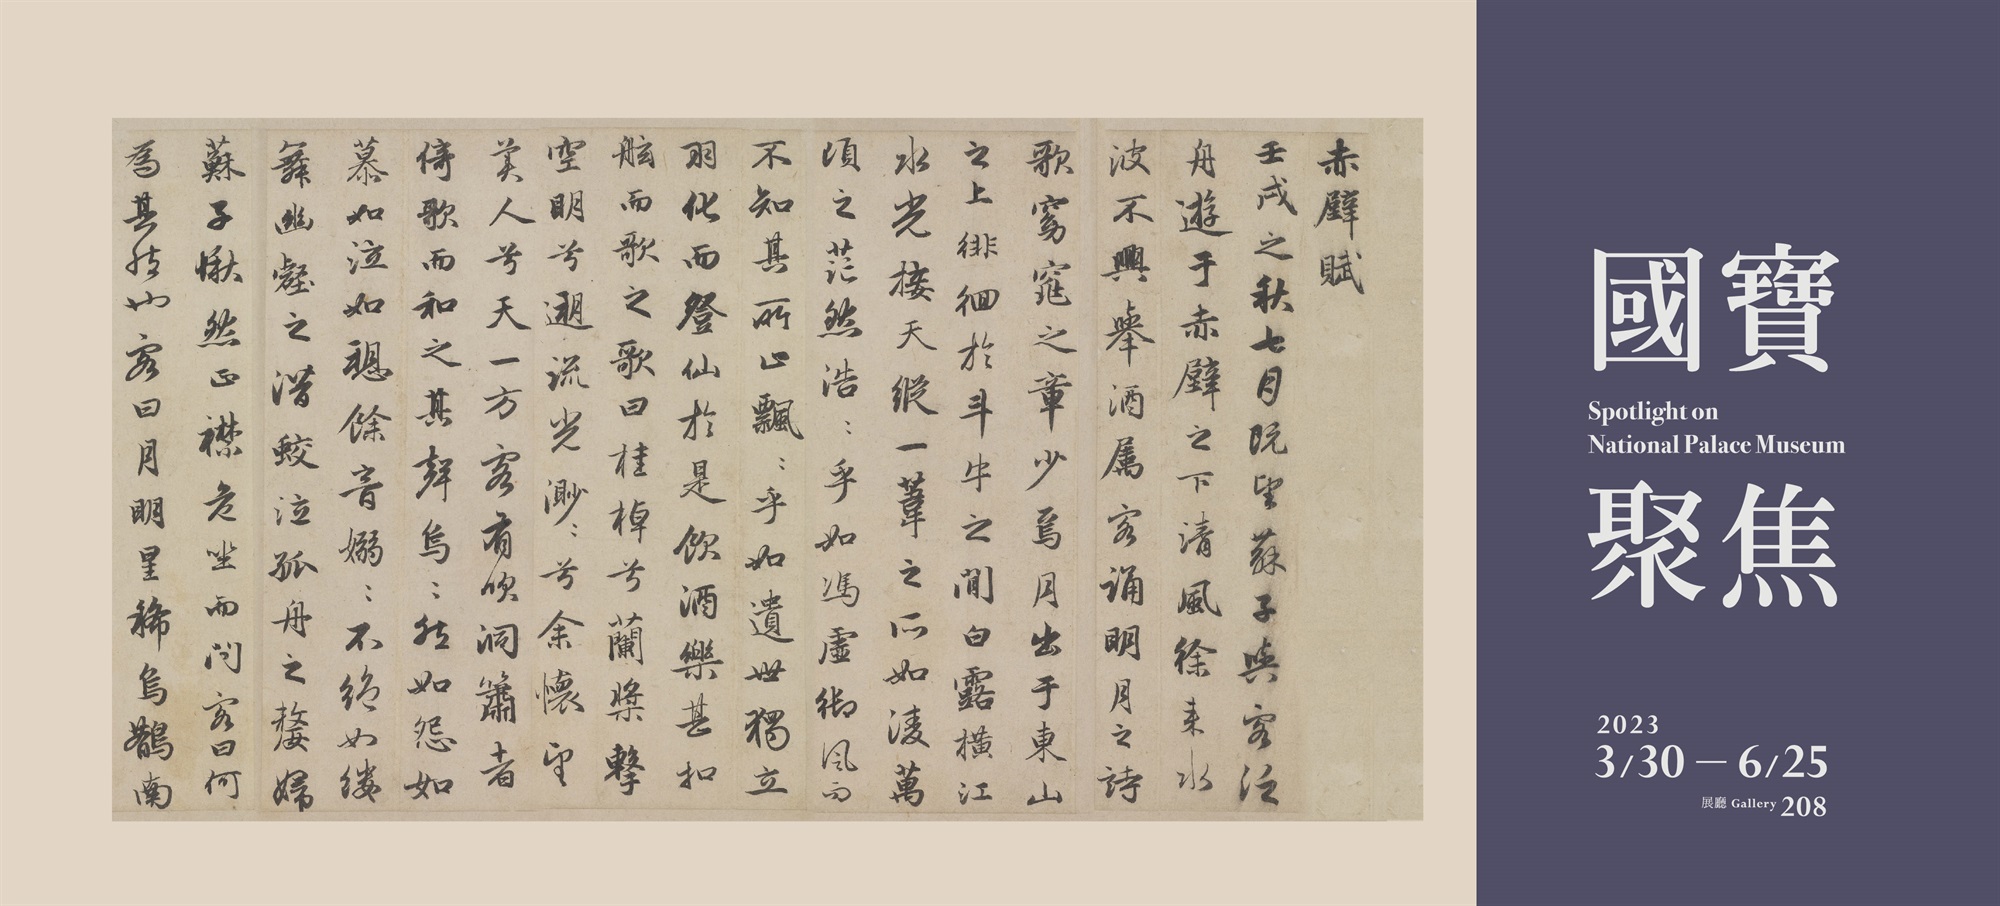 赤壁賦
壬戌之秋七月既望蘇子與客泛
舟遊于赤壁之下清風徐來水
波不興舉酒屬客誦明月之詩
歌窈窕之章少焉月出于東山
之上徘徊於斗牛之間白露橫江
水光接天縱一葦之所如淩萬
頃之茫然浩〻乎如馮虛御風而
不知其所止飄〻乎如遺世獨立
羽化而登仙於是飲酒樂甚扣
舷而歌之歌曰桂棹兮蘭槳擊
空明兮遡流光渺〻兮余懷望
美人兮天一方客有吹洞簫者
倚歌而和之其聲烏〻然如怨如
慕如泣如愬餘音嫋〻不絕如縷
舞幽壑之潛蛟泣孤舟之嫠婦
蘇子愀然正襟危坐而問客曰何
為其然也客曰月明星稀烏鵲南
國寶
Spotlight on
National Palace Museum
聚焦
2023
3/30 — 6/25
展廳 Gallery 208